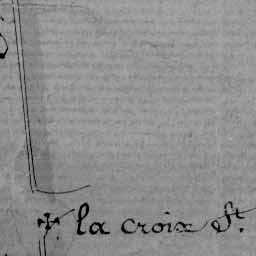 la croix St.